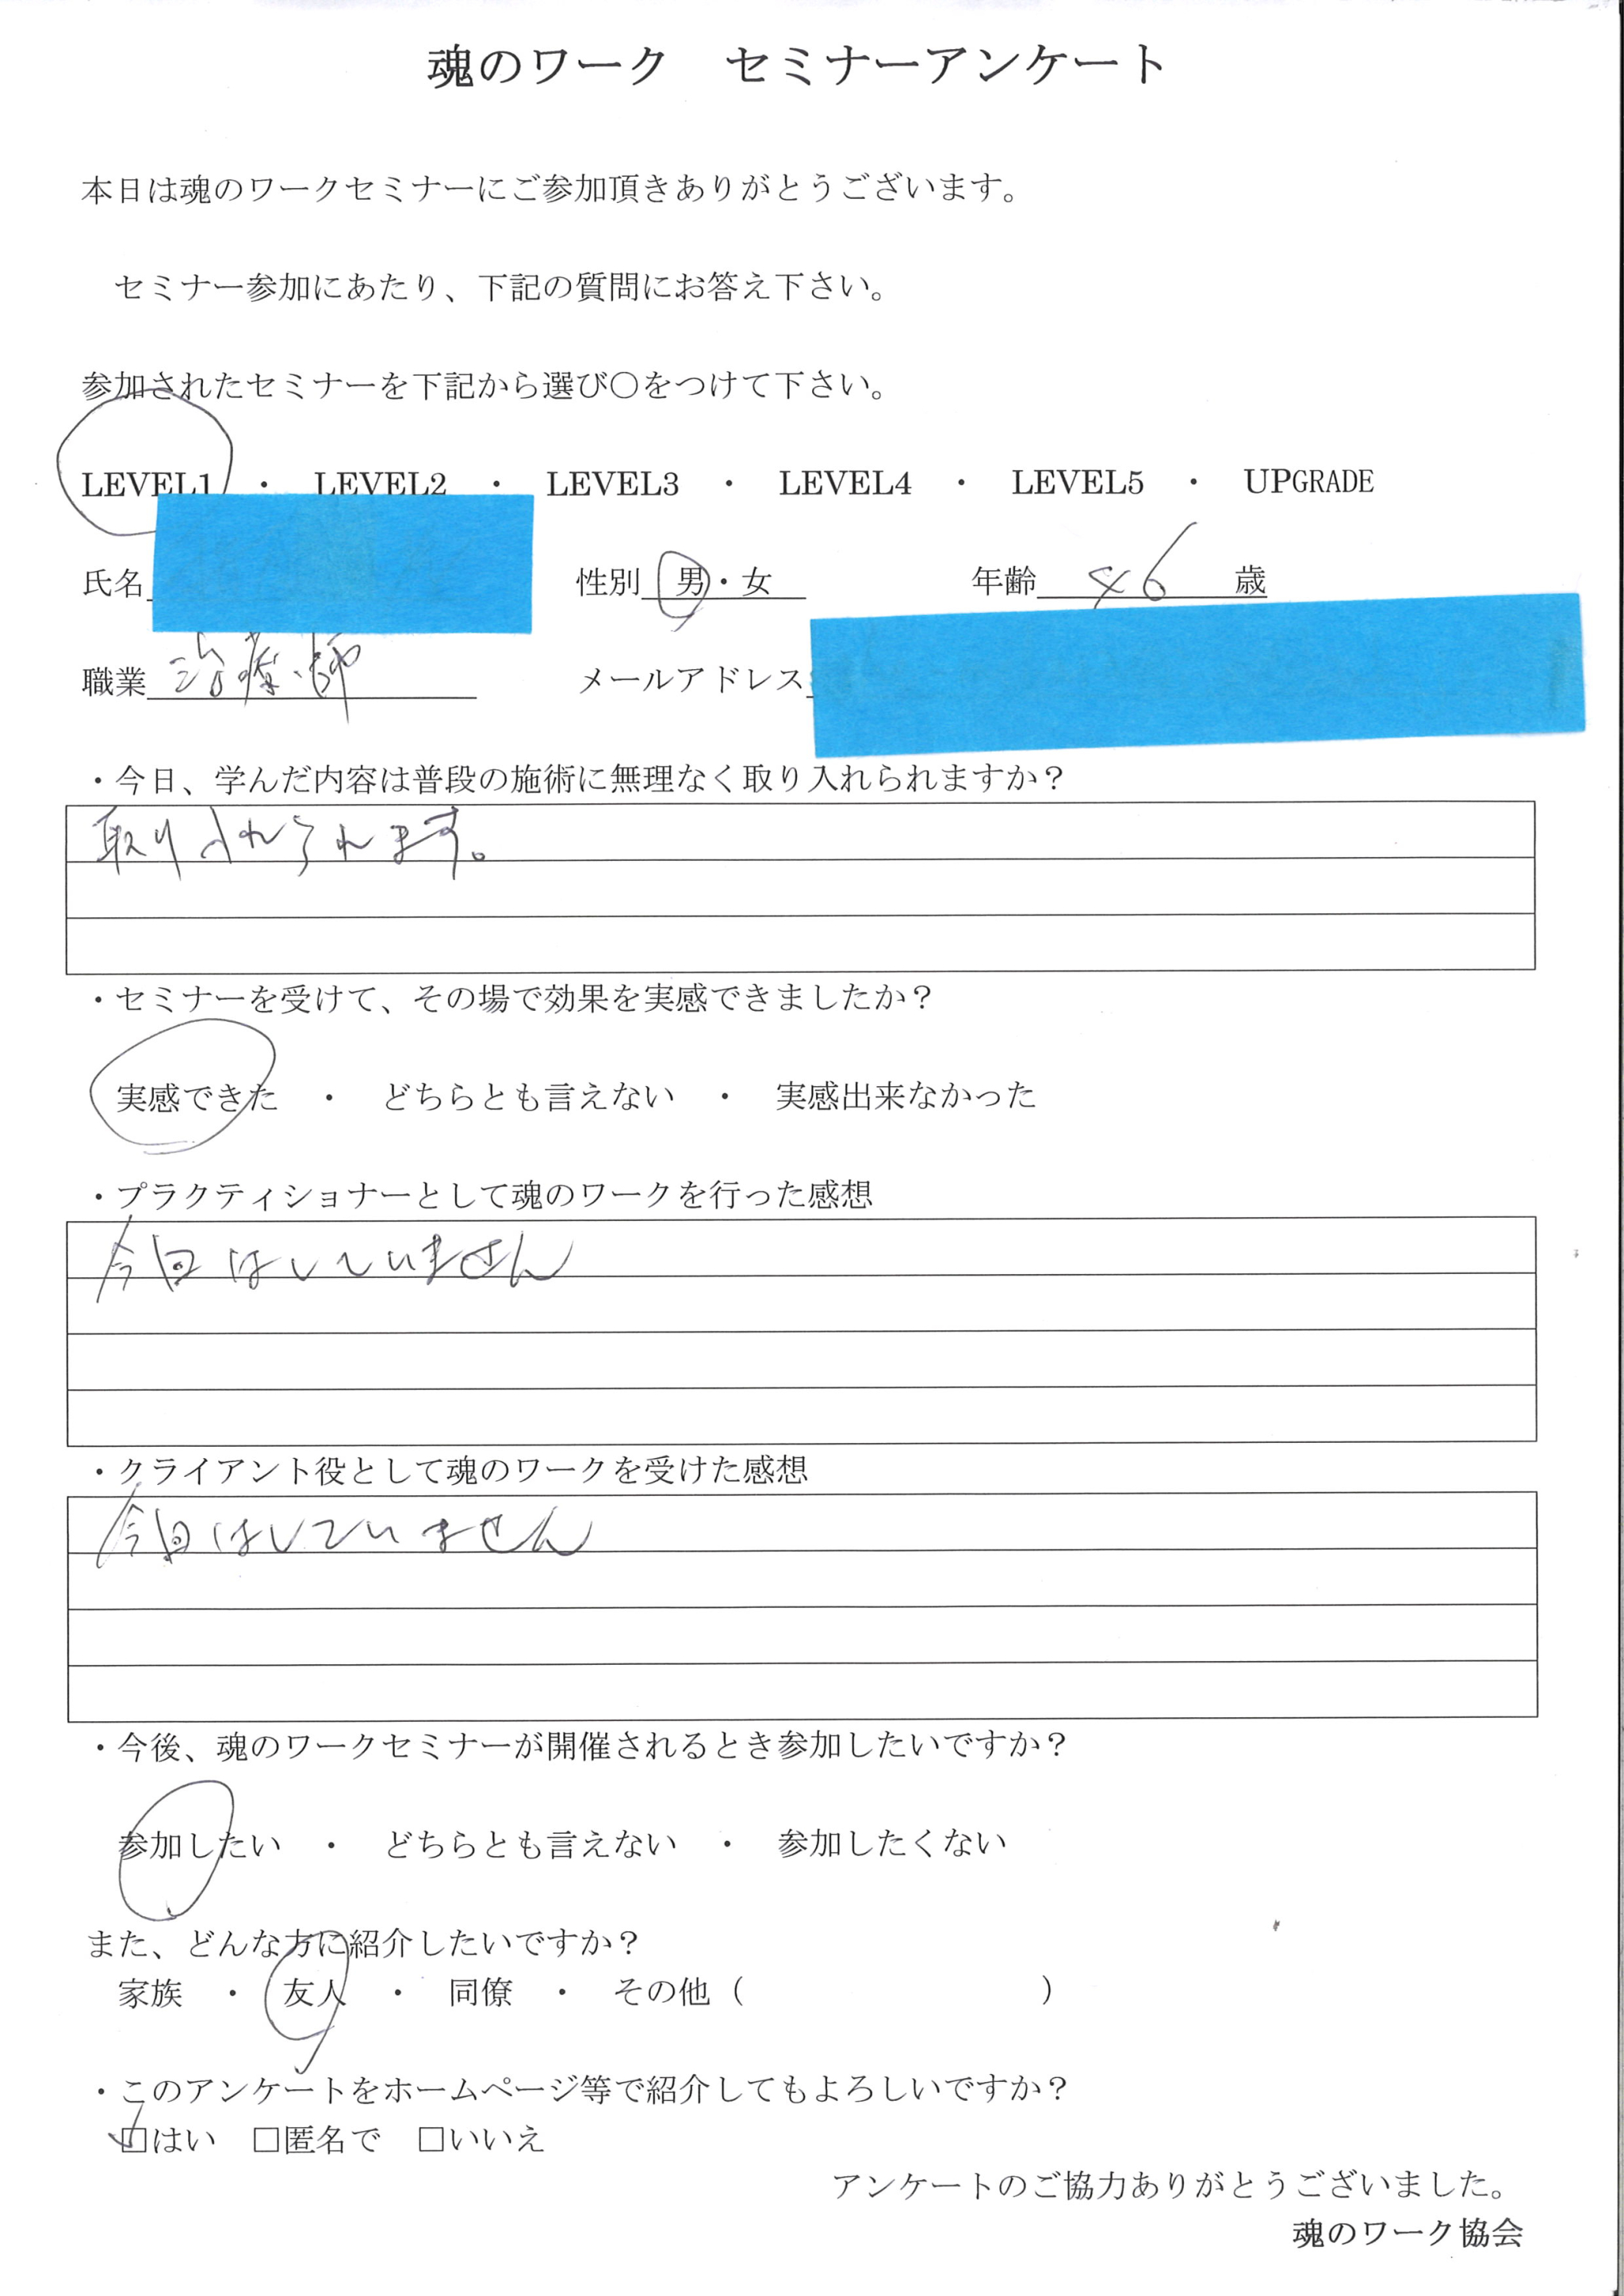 魂のワーク　セミナーアンケート
本日は魂のワークセミナーにご参加頂きありがとうございます。
セミナー参加にあたり、下記の質問にお答え下さい。
参加されたセミナーを下記から選び〇をつけて下さい。
LEVEL1 ・ LEVEL2 ・ LEVEL3 ・ LEVEL4 ・ LEVEL5 ・ UPGRADE
氏名 性別 男・女 年齢 46 歳
職業 治療師 メールアドレス
・今日、学んだ内容は普段の施術に無理なく取り入れられますか？
取り入れられます。
・セミナーを受けて、その場で効果を実感できましたか？
実感できた ・ どちらとも言えない ・ 実感出来なかった
・プラクティショナーとして魂のワークを行った感想
今回はしていません
・クライアント役として魂のワークを受けた感想
今回はしていません
・今後、魂のワークセミナーが開催されるとき参加したいですか？
参加したい ・ どちらとも言えない ・ 参加したくない
また、どんな方に紹介したいですか？
家族 ・ 友人 ・ 同僚 ・ その他（　　　　　　　　　）
・このアンケートをホームページ等で紹介してもよろしいですか？
☑はい □匿名で □いいえ
アンケートのご協力ありがとうございました。
魂のワーク協会